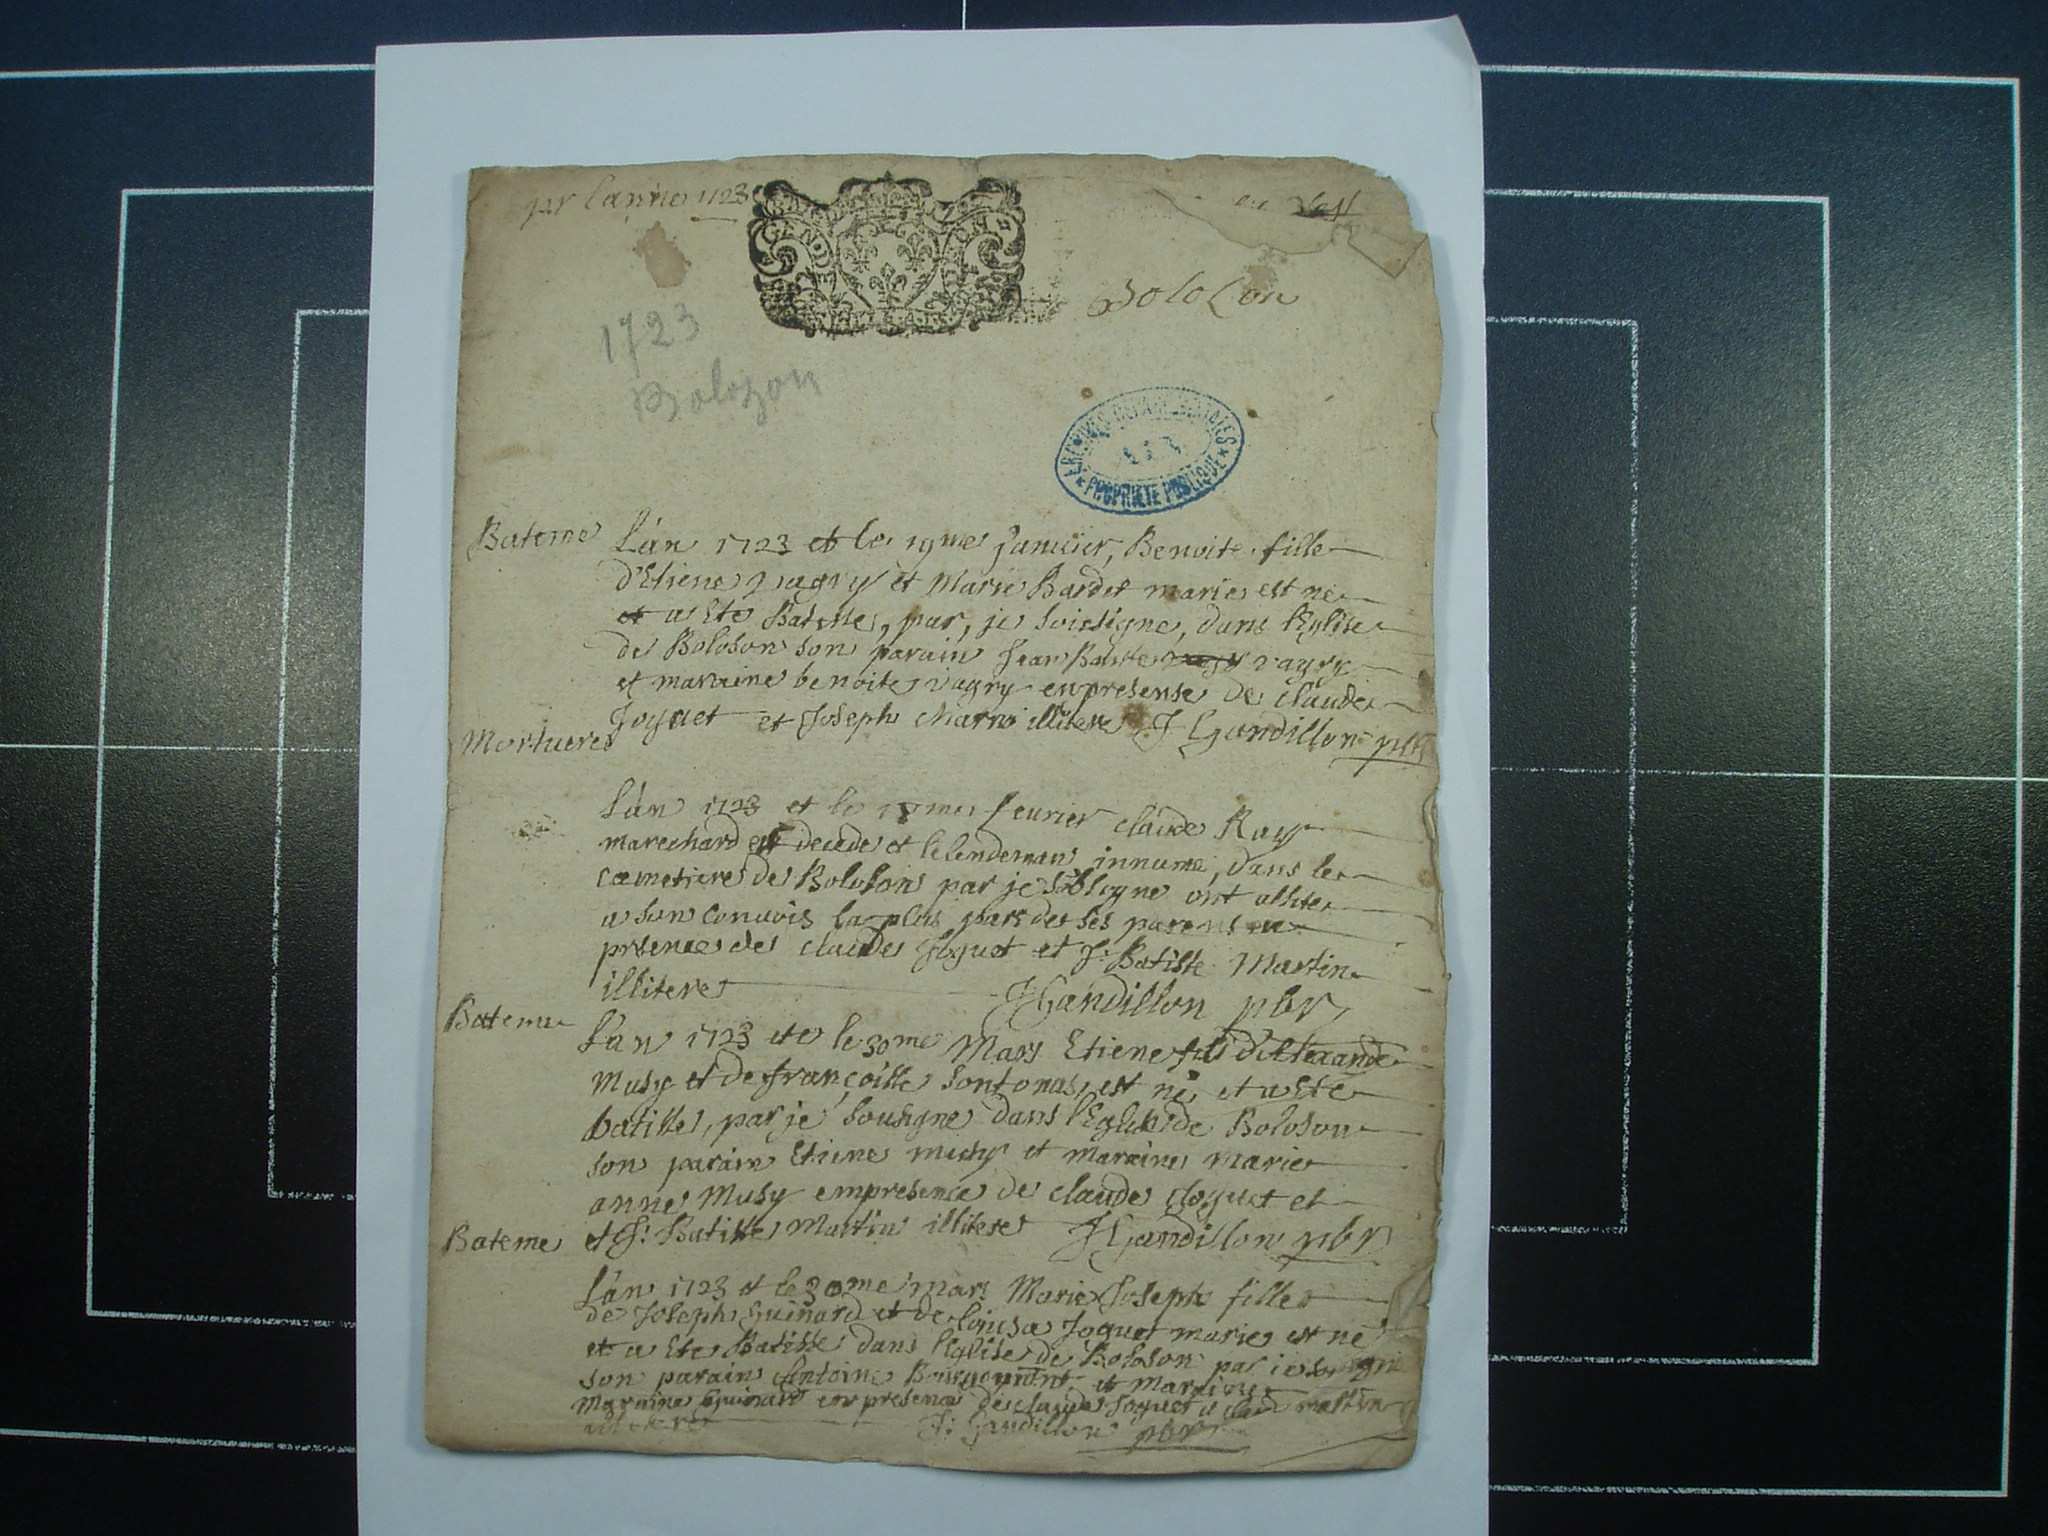 pr l'anne 1723
Boloson
1723
Bolozon
ARCHIVES DEPARTEMENTALES
* PROPRIETE PUBLIQUE *
Bateme L'an 1723 et le 19me Januier, Benoite fille
d'Etiene vagry et Marie Bardet maries est ne
et a Ete Batisse, par, je soissigne, dans l'Eglise
de Boloson son parain Jean Batiste vagry
et maraine benoite vagry en presense de claude
Joguet et Joseph illitere J Gandillon pbr
Mortuere
L'an 1723 et le 18me feurier claude Ray
marechard est decede et le lendeman innume, dans le
cemetiere de Boloson par je sossigne ont assite
a son conuois la plus part de ses parens en
presence de claude Joguet et J: Batiste Martin
illitere J Gandillon pbr
Bateme
L'an 1723 et le 30me Mars Etiene fils d'Alexandre
Musy et de françoisse sontonas est ne et a Ete
batisse, par je sousigne dans l'Eglise de Boloson
son parain Etiene musy et maraine marie
anne Musy en presence de claude Joguet et
et J: Batiste Martin illitere J Gandillon pbr
Bateme
L'an 1723 et le 30me mars Marie Joseph fille
de Joseph Guinard et de Joguet maries est ne
et a Ete Batisse dans l'Eglise de Boloson par je
son parain Antoine et maraine
Guinard en presence de claude Joguet et martin
illitere J: Gandillon pbr